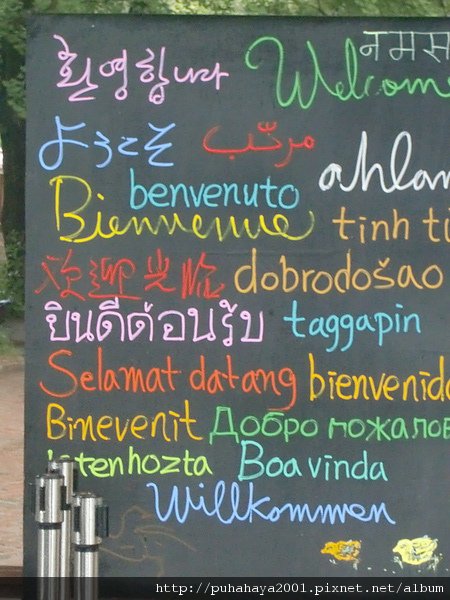 नमस
환영합니다 Welcome
ようこそ مرکّب ahlan
benvenuto
Bienvenue tinh ti
欢迎光临 dobrodošao
ยินดีต้อนรับ taggapin
Selamat datang bienvenido
Binevenit Добро пожалов
Istenhozta Boa vinda
Willkommen
http://puhahaya2001.pixnet.net/album